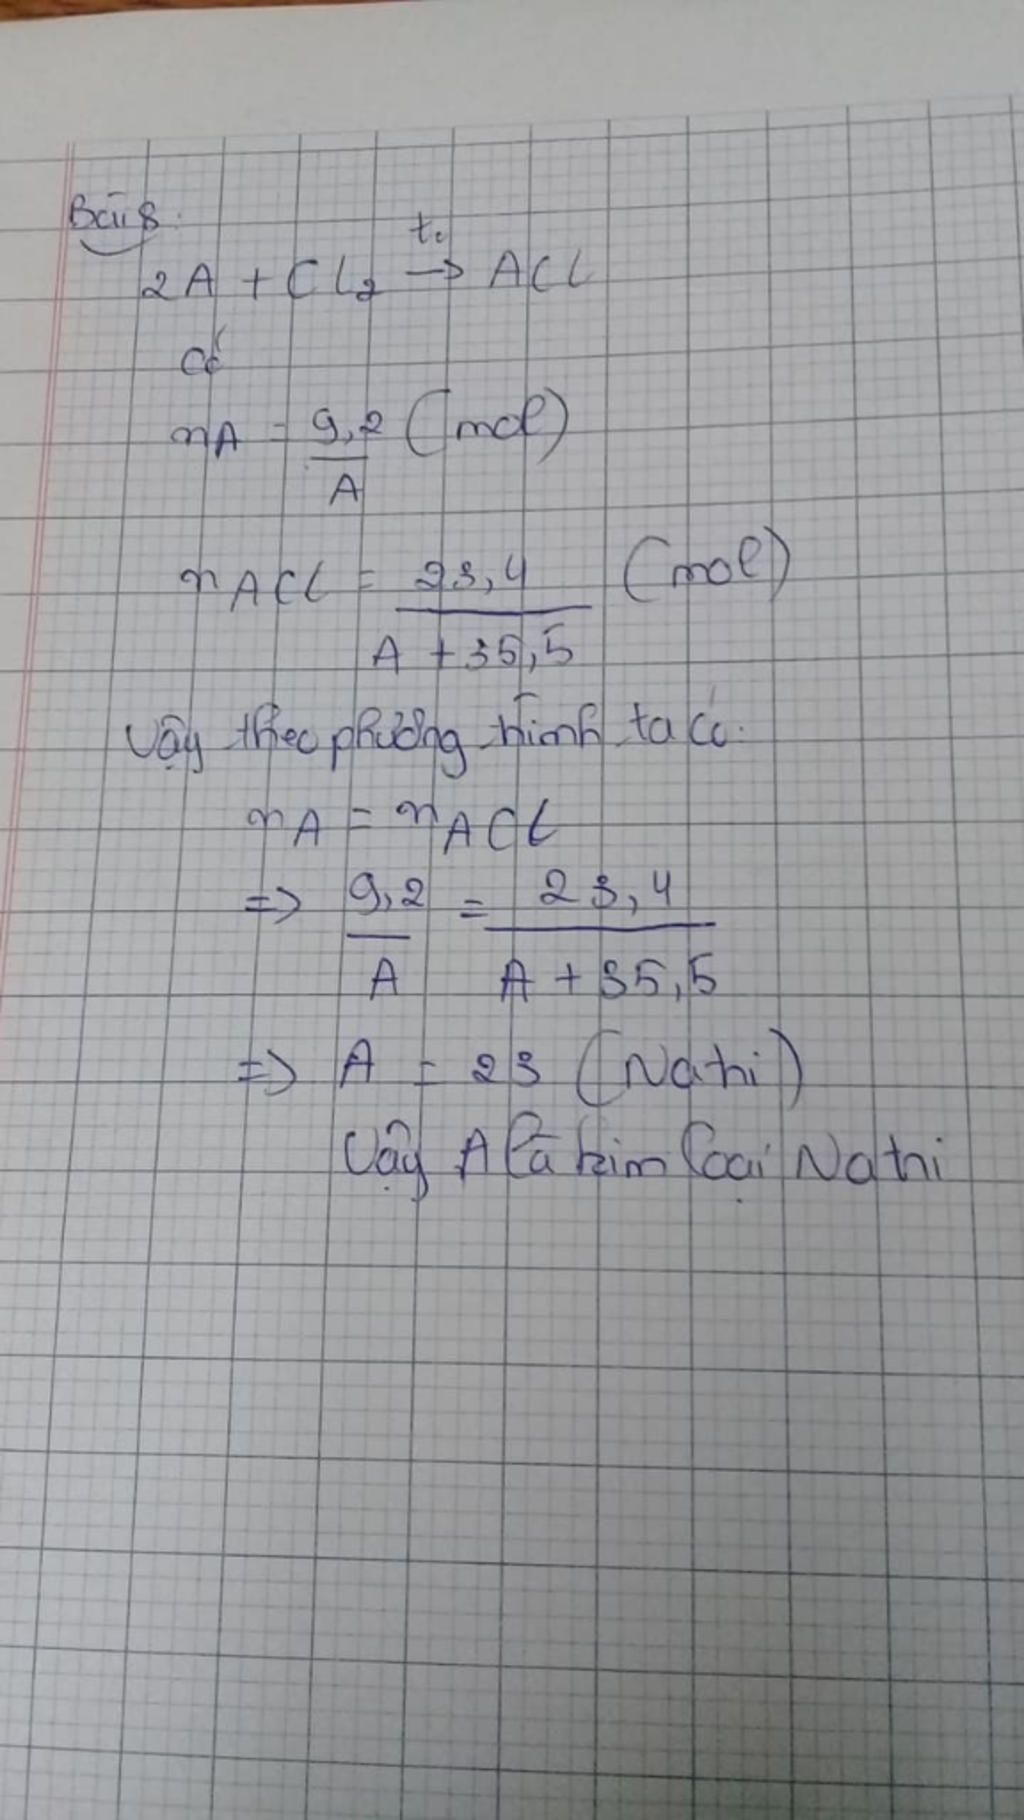 Bài 8:
t°
2A + Cl2 → ACl
Có
nA = 9,2 (mol)
A
nACl = 23,4 (mol)
A + 35,5
Vậy theo phương trình ta có:
nA = nACl
=> 9,2 = 23,4
A A + 35,5
=> A = 23 (Natri)
Vậy A là kim loại Natri